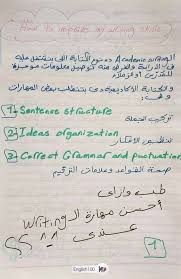 How to improve my writing skills
Academic writing دة نوع الكتابة اللي بنستعمل عليه
في الدراسة والغرض منه توصيل معلومات موجهة
للمدرسين أو زملاء
والكتابة الأكاديمية دي بتتطلب بعض المهارات
وهي:
1 Sentence structure
تركيب الجملة
2 Ideas organization
تنظيم الأفكار
3 Correct Grammar and puctuation
صحة القواعد وعلامات الترقيم
طب وازاى
أحسن مهارة الـ Writing
عندى
؟؟
1
English100